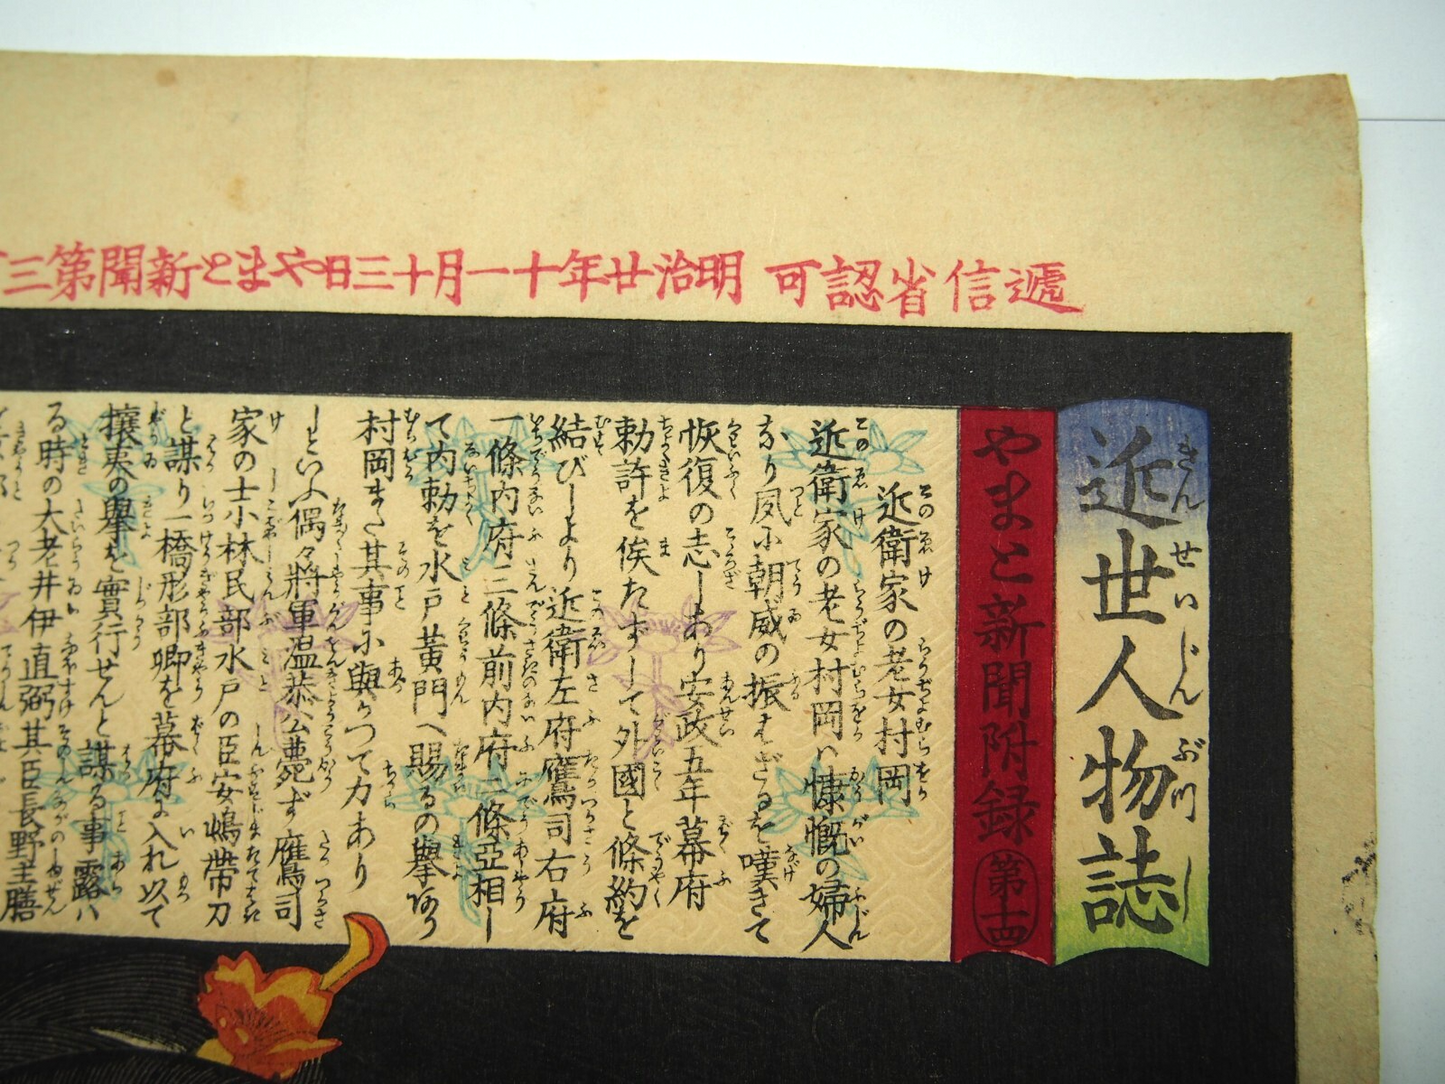 遞信省認可 明治廿年十一月十三日やまと新聞第三
近世人物誌
きんせいじんぶつし
やまと新聞附録
第十四
近衛家の老女村岡
近衛家の老女村岡ハ慷慨の婦人
なり夙に朝威の振はざるを嘆きて
恢復の志しあり安政五年幕府
勅許を俟たずして外國と條約を
結びしより近衛左府鷹司右府
一條内府三條前内府二條亞相し
て内勅を水戸黄門へ賜るの擧あり
村岡また其事に與かつて力あり
しといふ偶々將軍温恭公薨ず鷹司
家の士小林民部水戸の臣安嶋帶刀
と謀り一橋形部卿を幕府に入れ以て
攘夷の擧を實行せんと謀る事露ハ
る時の大老井伊直弼其臣長野主膳